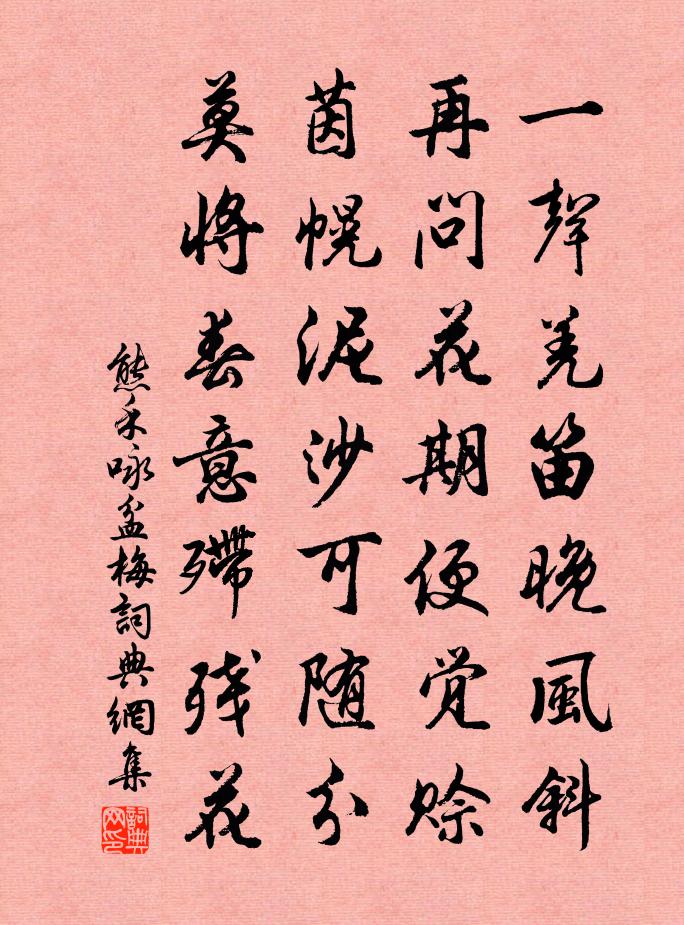 一聲羌笛晚風斜
再問花期便覺賖
茵幌泥沙可随分
莫將春意殢残花
熊禾咏盆梅詞典網集
詞典网印